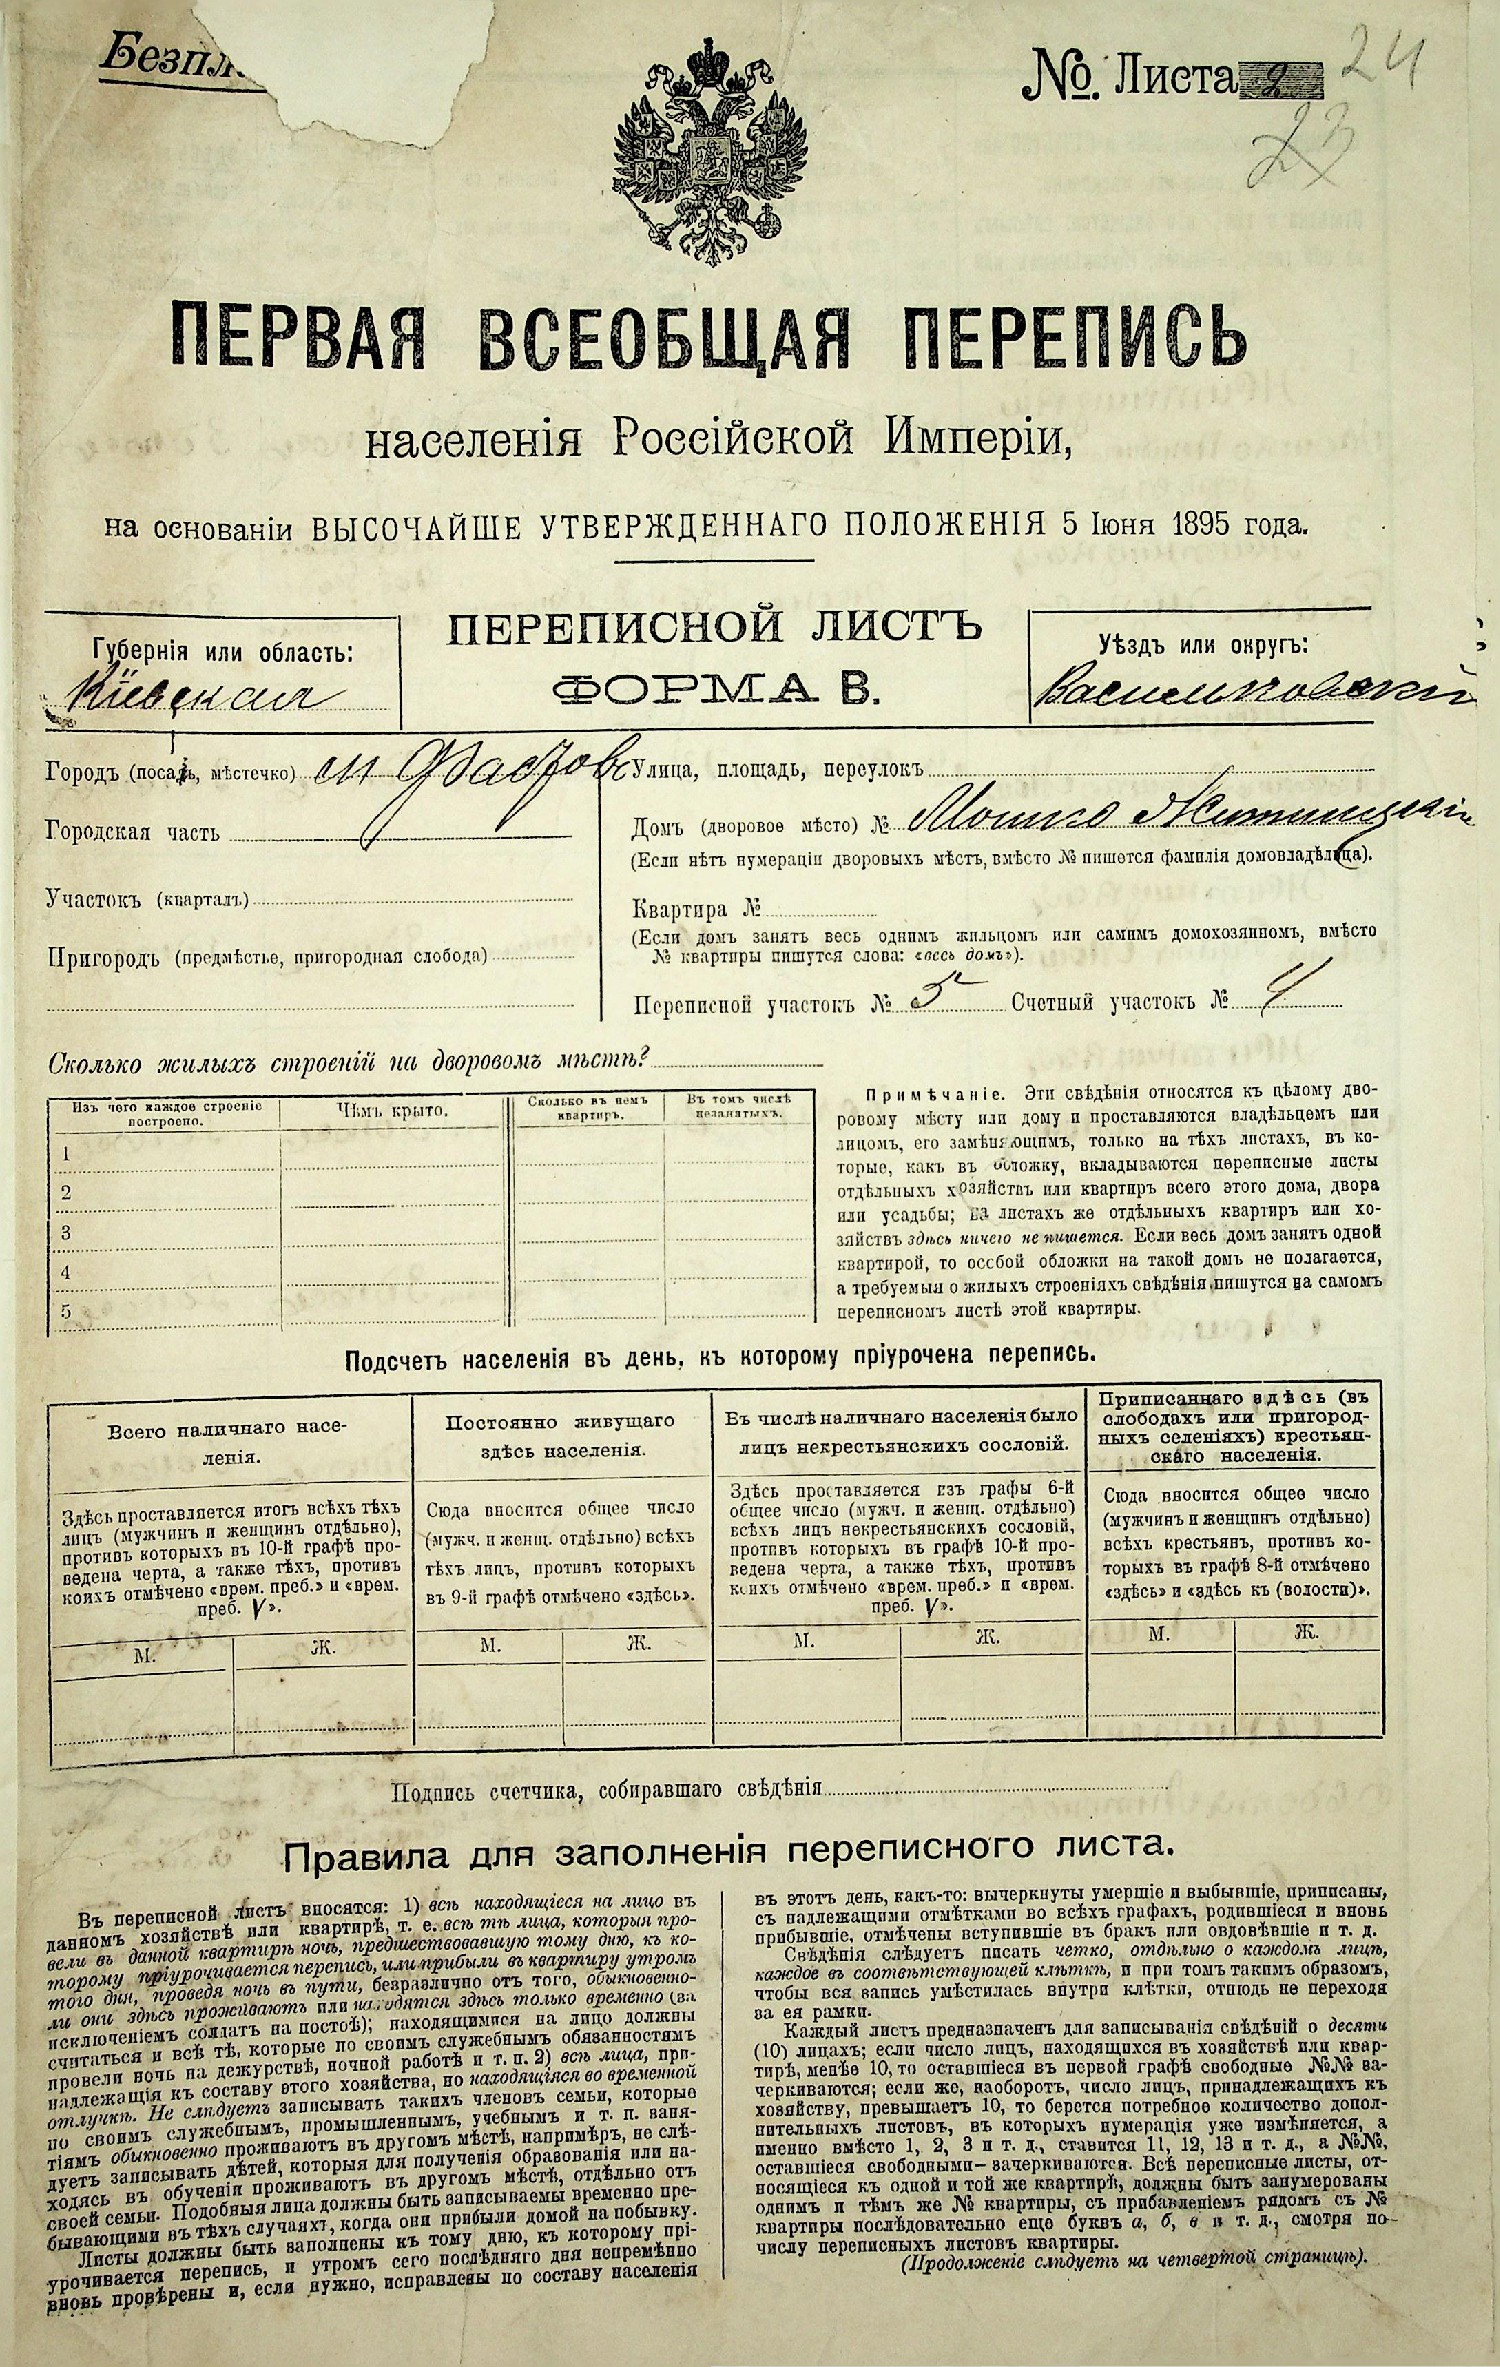 Безпл
№. Листа 2
24
23
ПЕРВАЯ ВСЕОБЩАЯ ПЕРЕПИСЬ
населенія Россійской Имперіи,
на основаніи ВЫСОЧАЙШЕ УТВЕРЖДЕННАГО ПОЛОЖЕНІЯ 5 Іюня 1895 года.
ПЕРЕПИСНОЙ ЛИСТЪ
ФОРМА В.
Губернія или область:
Кіевская
Уѣздъ или округъ:
Васильковскій
Городъ (посадъ, мѣстечко) м Фастовъ
Городская часть
Участокъ (кварталъ)
Пригородъ (предмѣстье, пригородная слобода)
Улица, площадь, переулокъ
Домъ (дворовое мѣсто) № Мошко Житницкій
(Если нѣтъ нумераціи дворовыхъ мѣстъ, вмѣсто № пишется фамилія домовладѣльца).
Квартира №
(Если домъ занятъ весь однимъ жильцомъ или самимъ домохозяиномъ, вмѣсто
№ квартиры пишутся слова: «весь домъ»).
Переписной участокъ № 5 Счетный участокъ № 4
Сколько жилыхъ строеній на дворовомъ мѣстѣ?
Изъ чего каждое строеніе
построено.
Чѣмъ крыто.
Сколько въ немъ
квартиръ.
Въ томъ числѣ
незанятыхъ.
1
2
3
4
5
Примѣчаніе. Эти свѣдѣнія относятся къ цѣлому дво-
ровому мѣсту или дому и проставляются владѣльцемъ или
лицомъ, его замѣняющимъ, только на тѣхъ листахъ, въ ко-
торые, какъ въ обложку, вкладываются переписные листы
отдѣльныхъ хозяйствъ или квартиръ всего этого дома, двора
или усадьбы; на листахъ же отдѣльныхъ квартиръ или хо-
зяйствъ здѣсь ничего не пишется. Если весь домъ занятъ одной
квартирой, то особой обложки на такой домъ не полагается,
а требуемыя о жилыхъ строеніяхъ свѣдѣнія пишутся на самомъ
переписномъ листѣ этой квартиры.
Подсчетъ населенія въ день, къ которому пріурочена перепись.
Всего наличнаго насе-
ленія.
Здѣсь проставляется итогъ всѣхъ тѣхъ
лицъ (мужчинъ и женщинъ отдѣльно),
противъ которыхъ въ 10-й графѣ про-
ведена черта, а также тѣхъ, противъ
коихъ отмѣчено «врем. преб.» и «врем.
преб. V».
М. Ж.
Постоянно живущаго
здѣсь населенія.
Сюда вносится общее число
(мужч. и женщ. отдѣльно) всѣхъ
тѣхъ лицъ, противъ которыхъ
въ 9-й графѣ отмѣчено «здѣсь».
М. Ж.
Въ числѣ наличнаго населенія было
лицъ некрестьянскихъ сословій.
Здѣсь проставляется изъ графы 6-й
общее число (мужч. и женщ. отдѣльно)
всѣхъ лицъ некрестьянскихъ сословій,
противъ которыхъ въ графѣ 10-й про-
ведена черта, а также тѣхъ, противъ
коихъ отмѣчено «врем. преб.» и «врем.
преб. V».
М. Ж.
Приписаннаго здѣсь (въ
слободахъ или пригород-
ныхъ селеніяхъ) крестьян-
скаго населенія.
Сюда вносится общее число
(мужчинъ и женщинъ отдѣльно)
всѣхъ крестьянъ, противъ ко-
торыхъ въ графѣ 8-й отмѣчено
«здѣсь» и «здѣсь къ (волости)».
М. Ж.
Подпись счетчика, собиравшаго свѣдѣнія
Правила для заполненія переписного листа.
Въ переписной листъ вносятся: 1) всѣ находящіеся на лицо въ
данномъ хозяйствѣ или квартирѣ, т. е. всѣ тѣ лица, которыя про-
вели въ данной квартирѣ ночь, предшествовавшую тому дню, къ ко-
торому пріурочивается перепись, или прибыли въ квартиру утромъ
того дня, проведя ночь въ пути, безразлично отъ того, обыкновенно-
ли они здѣсь проживаютъ или находятся здѣсь только временно (за
исключеніемъ солдатъ на постоѣ); находящимися на лицо должны
считаться и всѣ тѣ, которые по своимъ служебнымъ обязанностямъ
провели ночь на дежурствѣ, ночной работѣ и т. п. 2) всѣ лица, при-
надлежащія къ составу этого хозяйства, но находящіяся во временной
отлучкѣ. Не слѣдуетъ записывать такихъ членовъ семьи, которые
по своимъ служебнымъ, промышленнымъ, учебнымъ и т. п. заня-
тіямъ обыкновенно проживаютъ въ другомъ мѣстѣ, напримѣръ, не слѣ-
дуетъ записывать дѣтей, которыя для полученія образованія или на-
ходясь въ обученіи проживаютъ въ другомъ мѣстѣ, отдѣльно отъ
своей семьи. Подобныя лица должны быть записываемы временно пре-
бывающими въ тѣхъ случаяхъ, когда они прибыли домой на побывку.
Листы должны быть заполнены къ тому дню, къ которому прі-
урочивается перепись, и утромъ сего послѣдняго дня непремѣнно
вновь провѣрены и, если нужно, исправлены по составу населенія
въ этотъ день, какъ-то: вычеркнуты умершіе и выбывшіе, приписаны,
съ надлежащими отмѣтками во всѣхъ графахъ, родившіеся и вновь
прибывшіе, отмѣчены вступившіе въ бракъ или овдовѣвшіе и т. д.
Свѣдѣнія слѣдуетъ писать четко, отдѣльно о каждомъ лицѣ,
каждое въ соотвѣтствующей клѣткѣ, и при томъ такимъ образомъ,
чтобы вся запись умѣстилась внутри клѣтки, отнюдь не переходя
за ея рамки.
Каждый листъ предназначенъ для записыванія свѣдѣній о десяти
(10) лицахъ; если число лицъ, находящихся въ хозяйствѣ или квар-
тирѣ, менѣе 10, то оставшіеся въ первой графѣ свободные №№ за-
черкиваются; если же, наоборотъ, число лицъ, принадлежащихъ къ
хозяйству, превышаетъ 10, то берется потребное количество допол-
нительныхъ листовъ, въ которыхъ нумерація уже измѣняется, а
именно вмѣсто 1, 2, 3 и т. д., ставится 11, 12, 13 и т. д., а №№,
оставшіеся свободными—зачеркиваются. Всѣ переписные листы, от-
носящіеся къ одной и той же квартирѣ, должны быть занумерованы
однимъ и тѣмъ же № квартиры, съ прибавленіемъ рядомъ съ №
квартиры послѣдовательно еще буквъ а, б, в и т. д., смотря по
числу переписныхъ листовъ квартиры.
(Продолженіе слѣдуетъ на четвертой страницѣ).